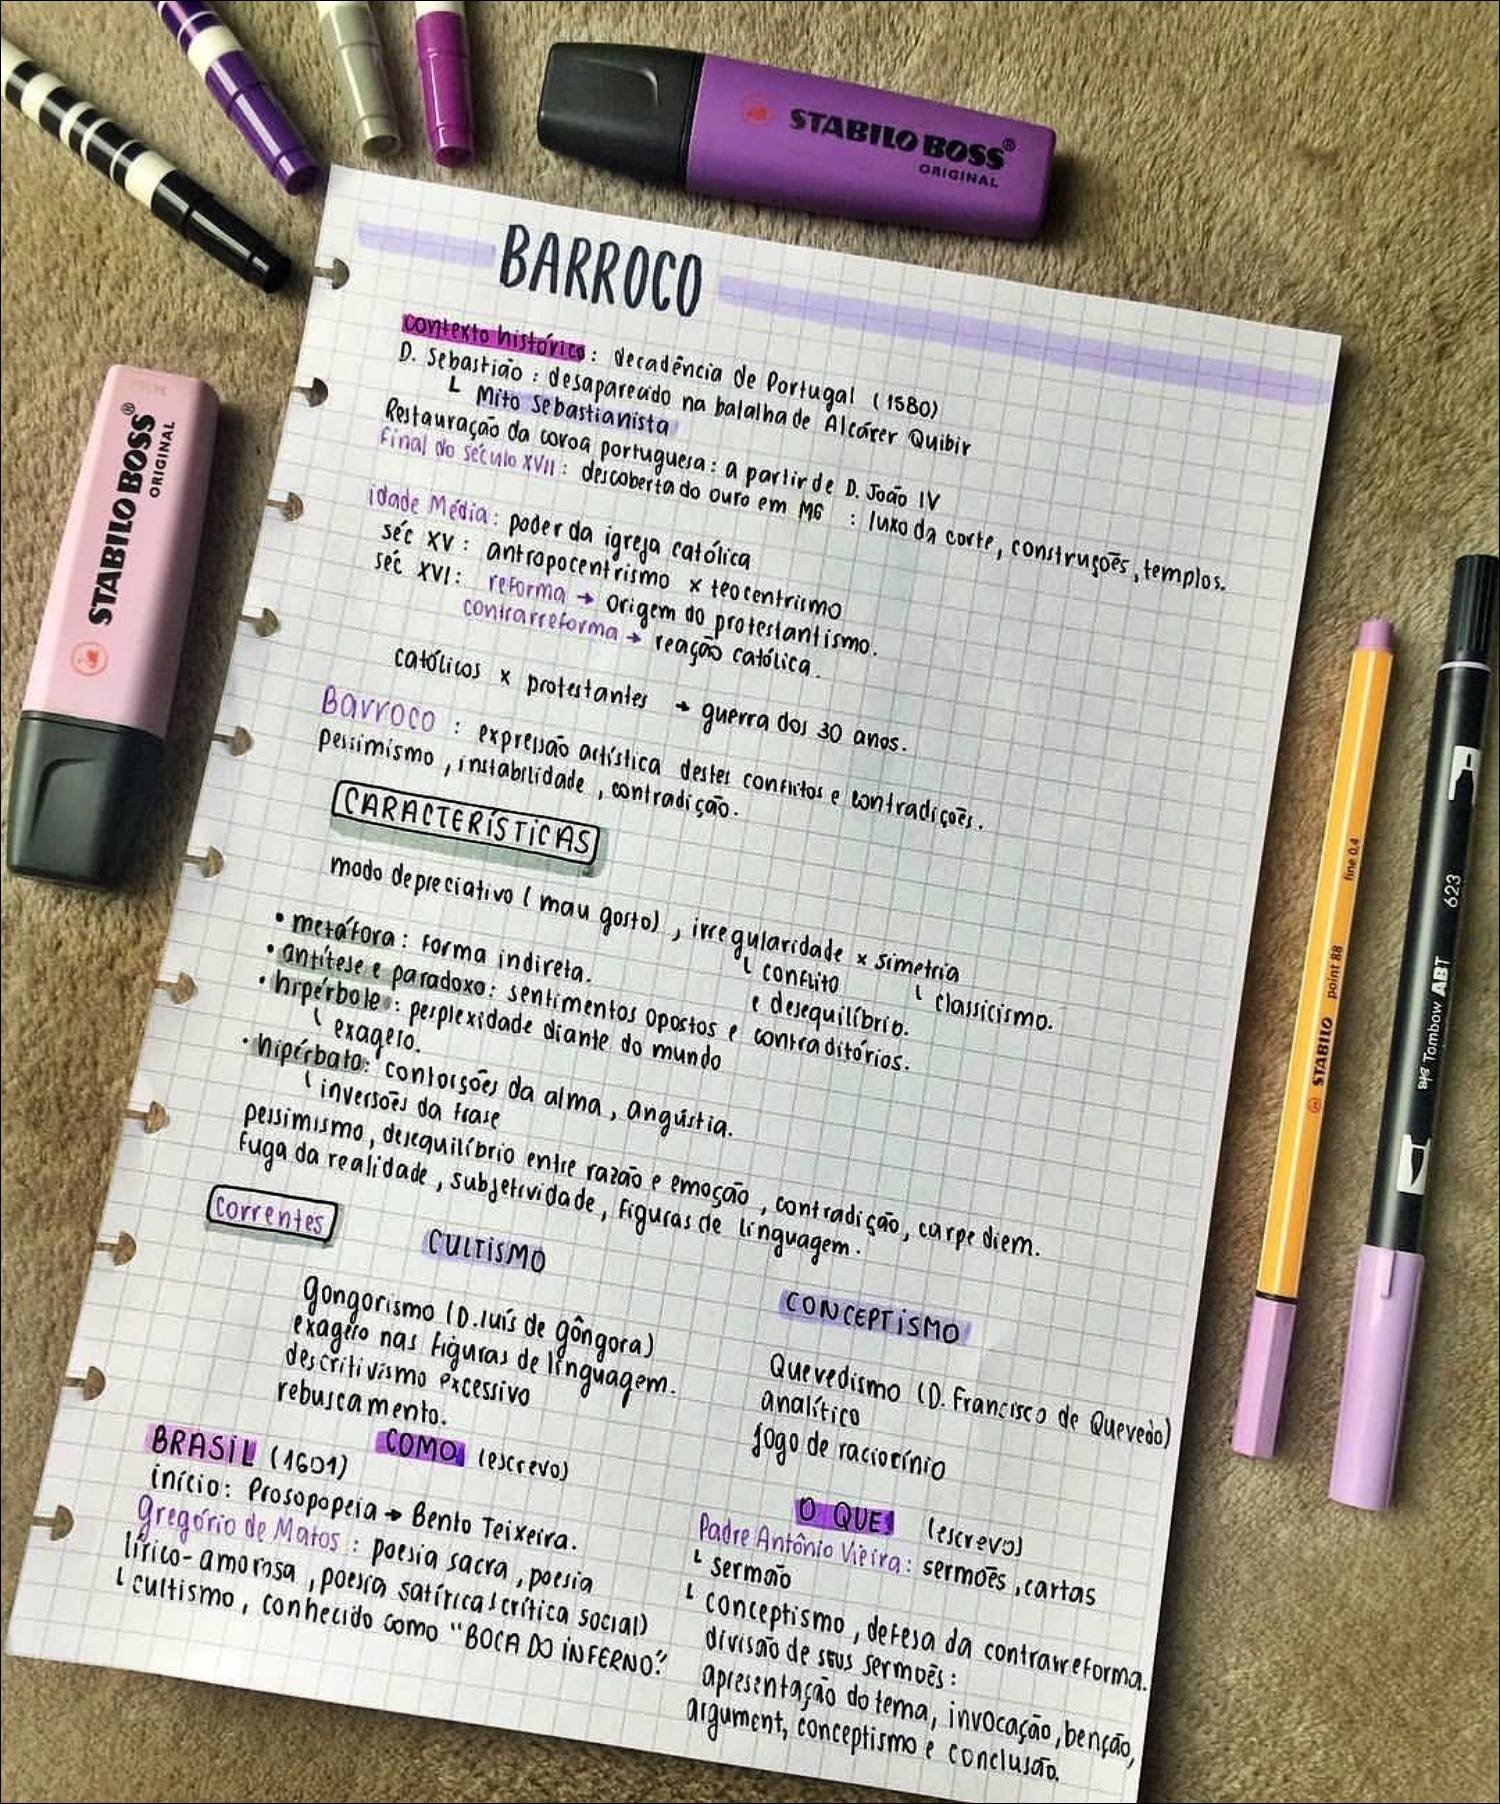 STABILO BOSS®
ORIGINAL
STABILO BOSS®
ORIGINAL
BARROCO
contexto histórico: decadência de Portugal (1580)
D. Sebastião: desaparecido na balalha de Alcárer Quibir
Mito Sebastianista
Restauração da coroa portuguesa: a partir de D. João IV
Final do século XVII: descoberta do ouro em MG : luxo da corte, construções, templos.
idade Média: poder da igreja católica
séc XV: antropocentrismo x teocentrismo
séc XVI: reforma → origem do protestantismo.
contrarreforma → reação católica.
católicos x protestantes → guerra dos 30 anos.
Barroco: expressão artística destes conflitos e contradições.
pessimismo, instabilidade, contradição.
CARACTERÍSTICAS
modo depreciativo (mau gosto), irregularidade x simetria
conflito
e desequilíbrio.
classicismo.
• metáfora: forma indireta.
• antítese e paradoxo: sentimentos opostos e contraditórios.
• hipérbole: perplexidade diante do mundo
exagero.
• hipérbato: contorsões da alma, angústia.
inversões da frase
pessimismo, desequilíbrio entre razão e emoção, contradição, carpe diem.
fuga da realidade, subjetividade, figuras de linguagem.
Correntes
CULTISMO
Gongorismo (D. luís de gôngora)
exagero nas figuras de linguagem.
descritivismo excessivo
rebuscamento.
COMO (escrevo)
CONCEPTISMO
Quevedismo (D. Francisco de Quevedo)
analítico
jogo de raciocínio
O QUE (escrevo)
BRASIL (1601)
início: Prosopopeia → Bento Teixeira.
Gregório de Matos: poesia sacra, poesia
lírico-amorosa, poesia satírica (crítica social)
cultismo, conhecido como "BOCA DO INFERNO".
Padre Antônio Vieira: sermões, cartas
sermão
conceptismo, defesa da contrarreforma.
divisão de seus sermões:
apresentação do tema, invocação, benção,
argument, conceptismo e conclusão.
STABILO point 88 fine 0,4
Tombow ABT 623